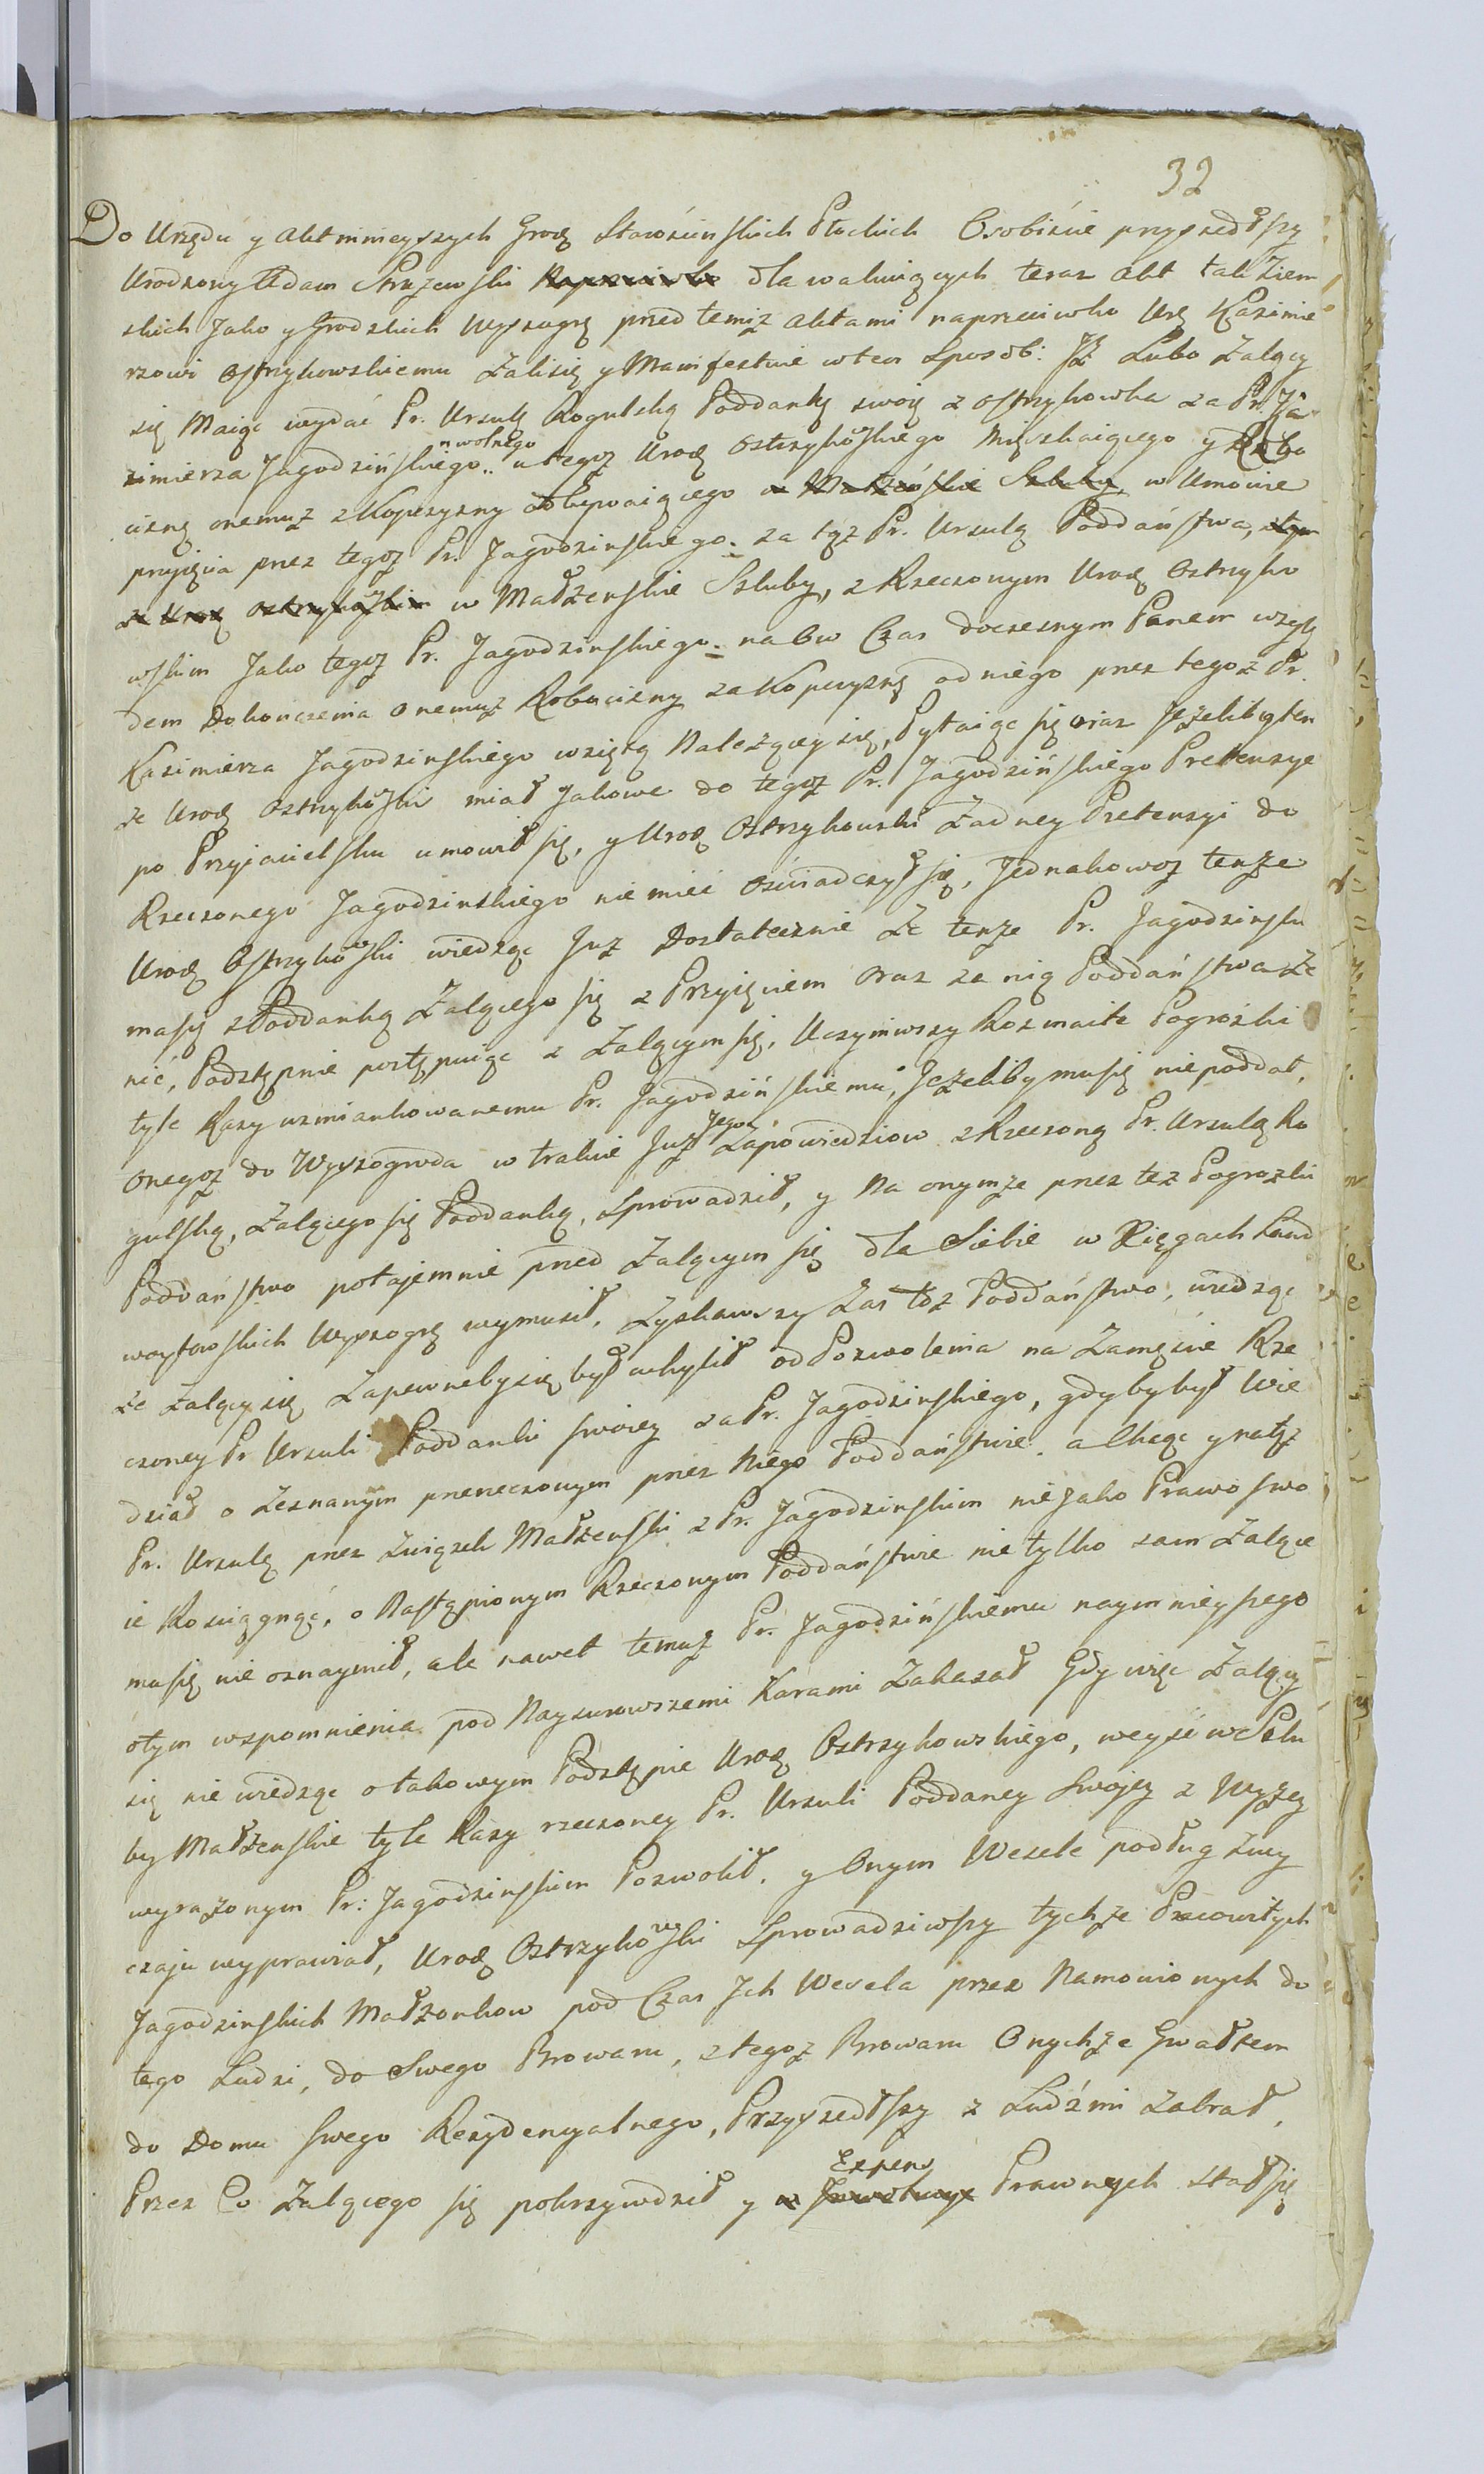 32
Do Urzędu y Akt mnieyszych Grodz Starościnskich Płockich Osobiście przyszedłszy
Urodzony Adam Strużewski dla wakuiących teraz Akt tak Ziem
skich Jako y Grodzkich Wyszogrę przed temiż Aktami naprzeciwko Urę Kazimie
rzowi Ostrzykowskiemu Żali się y Manifestuie w ten Sposób: Jż Lubo Żalący
się Maiąc wydać Pr. Urszulę Rogulską Poddankę swoię z Ostrzykowka za Pr. Ka
zimierza Jagodzińskiego wolnego u tegoż Urodz Ostrzykowskiego Mięszkaiącego y Robo
ciznę onemuż z Kopczyzny odbywaiącego w Małżeńskie Szluby w Umowie
przyięcia przez tegoż Pr. Jagodzinskiego za tęż Pr. Urszulę Poddaństwa,
z Urodz Ostrzykowskim w Małżenskie Szluby, z Rzeczonym Urodz Ostrzyko
wskim Jako tegoż Pr. Jagodzinskiego na ów Czas doczesnym Panem wzglę
dem Dokonczenia onemuż Robocizny za Kopczyznę od niego przez tegoż Pr.
Kazimierza Jagodzinskiego wziętą Należącey się, Pytaiąc się oraz Jeżeliby ten
że Urodz Ostrzykowski miał Jakowe do tegoż Pr. Jagodzińskiego Pretensye
po Przyiacielsku umowił się, y Urodz Ostrzykowski Żadney Pretensyi do
Rzeczonego Jagodzinskiego nie mieć Oświadczył się, Jednakowoż tenże
Urodz Ostrzykowski wiedząc Już Dostatecznie Że tenże Pr. Jagodzinski
ma się z Poddanką Żalącego się z Przyięciem oraz za nią Poddaństwa Że
nić, Podstępnie postępuiąc z Żalącym się, Uczyniwszy Rozmaite Pogrożki
tyle Razy wzmiankowanemu Pr. Jagodzińskiemu, Jeżeliby mu się nie poddał,
Onegoż do Wyszogroda w trakcie Już Jego Zapowiedziow z Rzeczoną Pr. Urszulą Ro
gulską, Żalącego się Poddanką, Sprowadził, y Na onymże przez też Pogrozki
Poddaństwo potajemnie przed Żalącym się dla Siebie w Xięgach Land
woytowskich Wyszogrę wymusił, Zyskawszy Zas toż Poddaństwo, wiedząc
że Żalący się Zapewneby się był uchylił od Pozwolenia na Zamęście Rze
czoney Pr Urszuli Poddanki swoiey za Pr. Jagodzinskiego, gdyby był Wie
dział o Zeznanym przerzeczonym przez Niego Poddaństwie, a Chcąc y na tęż
Pr. Urszulę przez Związek Małżenski z Pr. Jagodzinskim nie Jako Prawo swo
ie Rosciągnąć, o Nastąpionym Rzeczonym Poddaństwie nie tylko sam Żalące
mu się nie oznaymił, ale nawet temuż Pr. Jagodzińskiemu naymnieyszego
o tym wspomnienia pod Naysurowszemi Karami Zakazał Gdy więc Żalący
się nie wiedząc o takowym Podstępie Urodz Ostrzykowskiego, weyść w Szlu
by Małżenskie tyle Razy rzeczoney Pr. Urszuli Poddaney Swojey z Wyżey
wyrażonym Pr: Jagodzinskim Pozwolił, y Onym Wesele podług Zwy
czaju wyprawiał, Urodz Ostrzykowski Sprowadziwszy tychże Pracowitych
Jagodzinskich Małżonkow pod Czas Jch Wesela przez Namowionych do
tego Ludzi, do Swego Browaru, z tegoż Browaru Onychże Gwałtem
do Domu swego Rezydencyalnego, Przyszedłszy z Ludźmi Zabrał,
Przez Co Żalącego się pokrzywdził y Expens Prawnych stał się